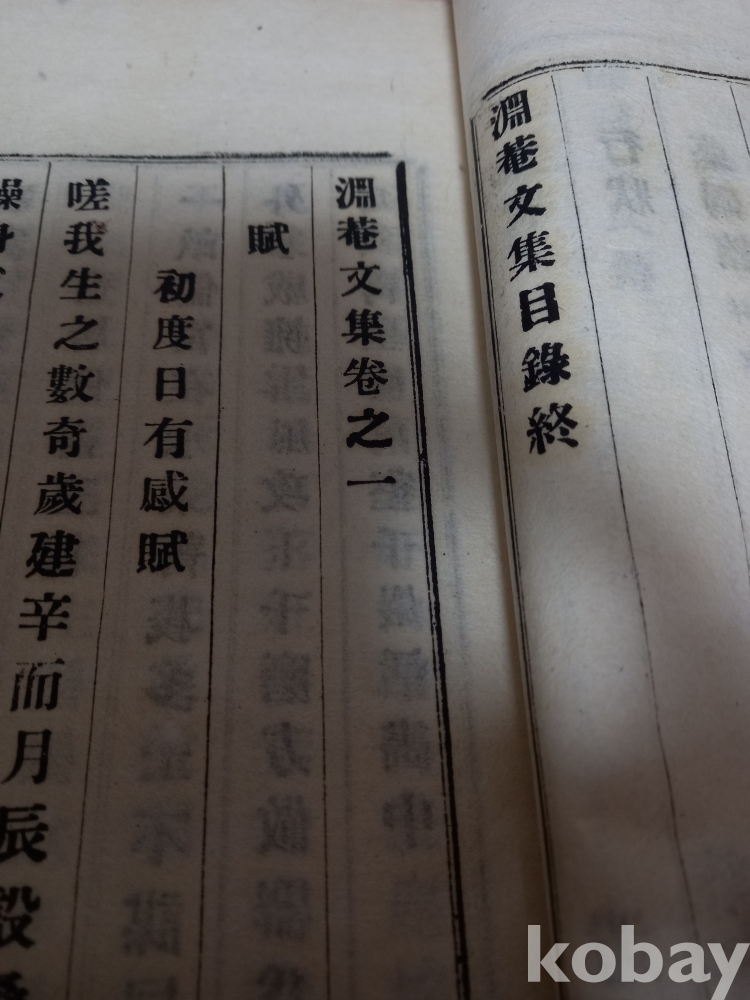 淵菴文集目錄終
淵菴文集卷之一
賦
初度日有感賦
嗟我生之數奇歲建辛而月辰
kobay